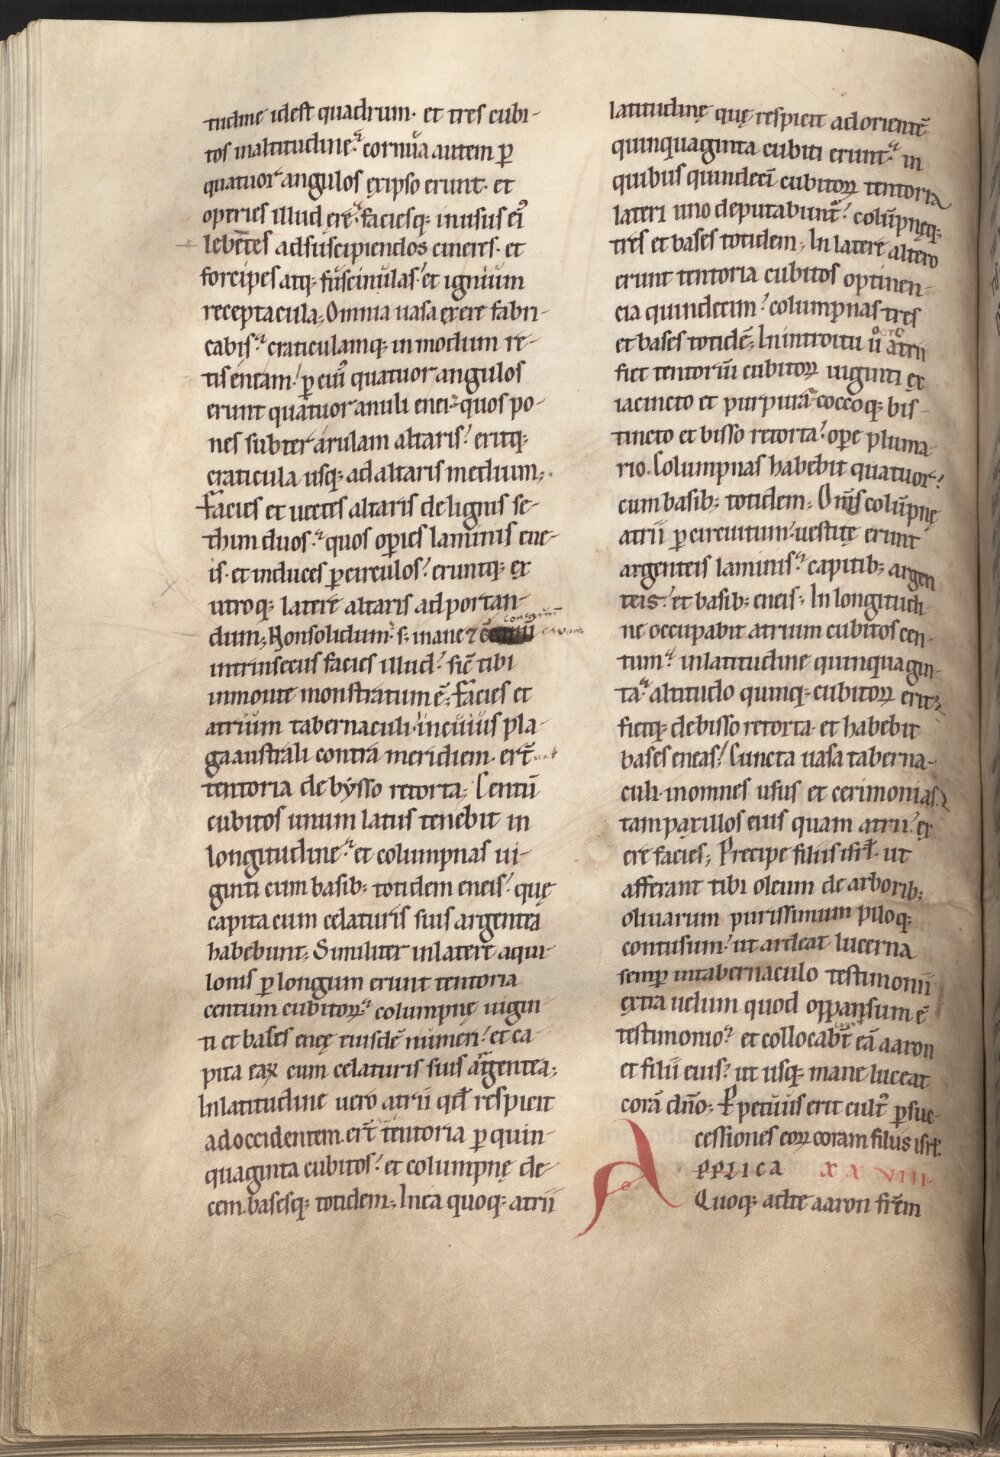 tudine idest quadrum. et tres cubi-
tos in altitudine. cornua autem p̄
quatuor angulos ex ipso erunt. et
operies illud ere. faciesq; in usus ei᷒
lebetes ad suscipiendos cineres. et
forcipes atq; fuscinulas. et ignium
receptacula; Omnia uasa ex ere fabri-
cabis. craticulamq; in modum re-
tis eneam. p̄ cui᷒ quatuor angulos
erunt quatuor anuli enei. quos po-
nes subter arulam altaris. eritq;
craticula usq; ad altaris medium;
Facies et uectes altaris de lignis se-
thim duos. quos op̄ies laminis ene-
is. et induces p̄ circulos. eruntq; ex
utroq; latere altaris ad portan-
dum; Non solidum. s; inane ⁊
cauum
intrinsecus facies illud. sic̄ tibi
in monte monstratum ē; Facies et
atrium tabernaculi. in cuius pla-
ga australi contra meridiem. ert̄
tentoria de bysso retorta; Centū
cubitos unum latus tenebit in
longitudine. et columpnas ui-
ginti cum basib; totidem eneis. quę
capita cum celaturis suis argentea
habebunt; Similiter in latere aqui-
lonis p̄ longum erunt tentoria
centum cubitoꝝ. columpnę uigin-
ti et bases enę eiusdē numeri. et ca-
pita eaꝝ cum celaturis suis argentea;
In latitudine uero atrii qd̄ respicit
ad occidentem. ert̄ tentoria p̄ quin-
quaginta cubitos. et columpnę de-
cem. basesq; totidem; In ea quoq; atrii
latitudinę quę respicit ad orientē
quinquaginta cubiti erunt. in
quibus quindecī cubitoꝝ tentoria
lateri uno deputabunt᷒. colūpnęq;
tres et bases totidem; In latere altero
erunt tentoria cubitos optinen-
cia quindecim. columpnas tres
et bases totidē; In introitu ů atrii
fiet tentoriū cubitoꝝ uiginti ex
iacincto et purpura. coccoq; bis-
tincto et bisso retorta. ope pluma-
rio. Columpnas habebit quatuor.
cum basib; totidem; Om̄s colūpnę
atrii p̄ circuitum. uestitę erunt
argenteis laminis. capitib; argen
teis. et basib; eneis; In longitudi-
ne occupabit atrium cubitos cen-
tum. in latitudine quinquagin-
ta. altitudo quinq; cubitoꝝ erit.
fietq; de bisso retorta. et habebit
bases eneas. Cuncta uasa taberna-
culi. in omnes usus et cerimonias.
tam paxillos eius quam atrii. ex
ere facies; Precipe filiis isrł. ut
afferant tibi oleum de arborib;
oliuarum purissimum piloq;
contusum. ut ardeat lucerna
semp̄ in tabernaculo testimonii
extra uelum quod oppansum ē
testimonio. et collocabt̄ eā aaron
et filii eius. ut usq; mane luceat
corā dn̄o; Ppetuus erit cult᷒ p̄ suc-
cessiones eoꝝ coram filiis isrł.
APPLICA XXVIII.
Quoq; ad te aaron frēm